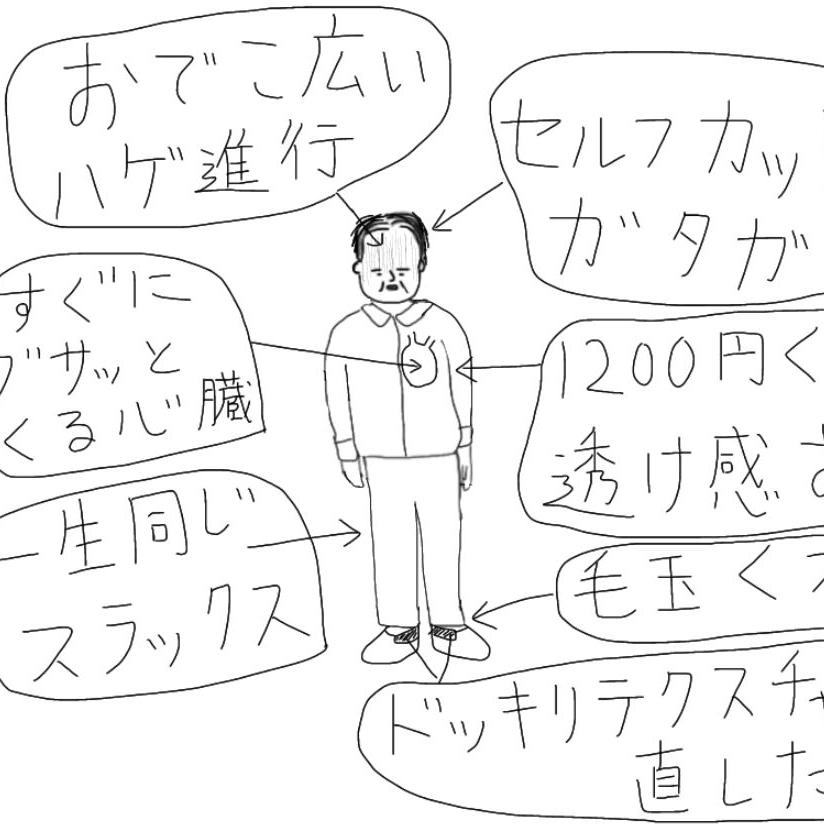 おでこ広い
ハゲ進行
セルフカッ
ガタガ
すぐに
グサッと
くる心臓
1200円く
透け感
一生同じ
スラックス
毛玉く
ドッキリテクスチャ
直した